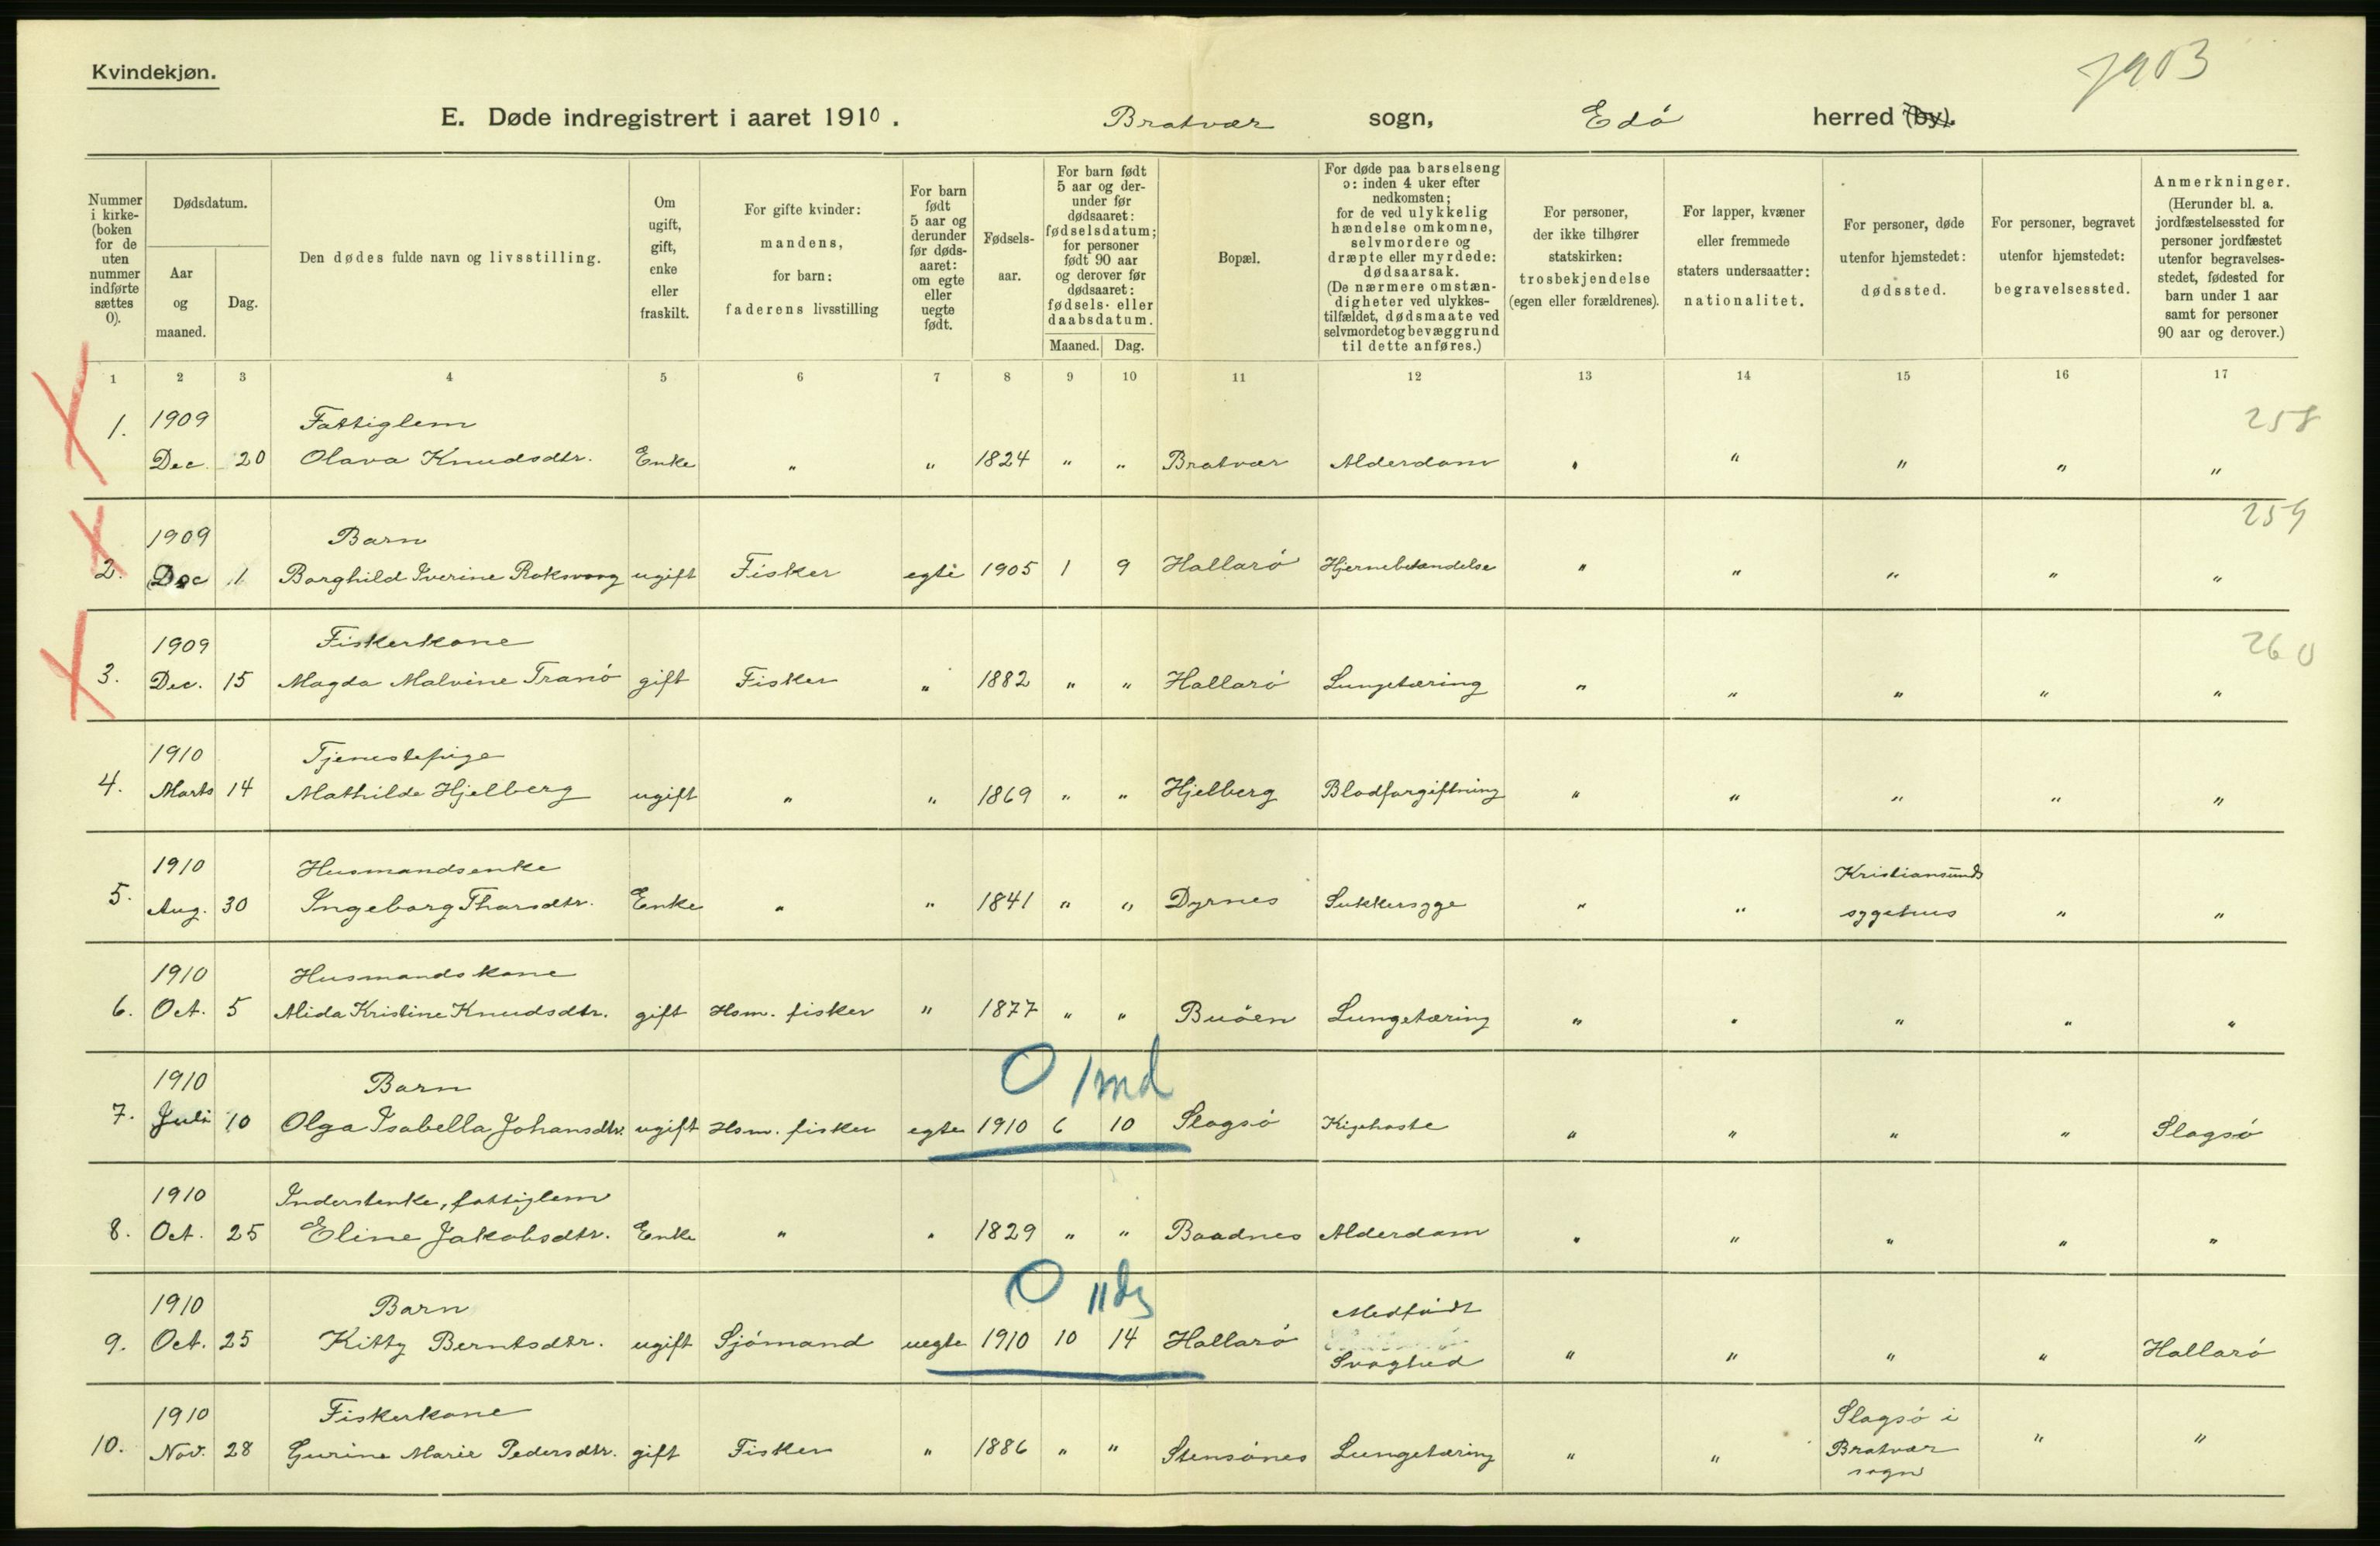 Kvindekjøn.
7903
E. Døde indregistrert i aaret 1910. Bratvær sogn, Edö herred (by).
Nummer i kirkeboken for de uten nummer indførte sættes 0).
Dødsdatum.
Aar og maaned.
Dag.
Den dødes fulde navn og livsstilling.
Om ugift, gift, enke eller fraskilt.
For gifte kvinder: mandens, for barn: faderens livsstilling
For barn født 5 aar og derunder før dødsaaret: om egte eller uegte født.
Fødselsaar.
For barn født 5 aar og derunder før dødsaaret: fødselsdatum; for personer født 90 aar og derover før dødsaaret: fødsels- eller daabsdatum.
Maaned. Dag.
Bopæl.
For døde paa barselseng ɔ: inden 4 uker efter nedkomsten; for de ved ulykkelig hændelse omkomne, selvmordere og dræpte eller myrdede: dødsaarsak. (De nærmere omstændigheter ved ulykkestilfældet, dødsmaate ved selvmordet og bevæggrund til dette anføres.)
For personer, der ikke tilhører statskirken: trosbekjendelse (egen eller forældrenes).
For lapper, kvæner eller fremmede staters undersaatter: nationalitet.
For personer, døde utenfor hjemstedet: dødssted.
For personer, begravet utenfor hjemstedet: begravelsessted.
Anmerkninger. (Herunder bl. a. jordfæstelsessted for personer jordfæstet utenfor begravelsesstedet, fødested for barn under 1 aar samt for personer 90 aar og derover.)
1 2 3 4 5 6 7 8 9 10 11 12 13 14 15 16 17
1909 Fattiglem 258
1. Dec. 20 Olava Knudsdtr. Enke " " 1824 " " Bratvær Alderdom " " " " "
1909 Barn 259
2. Dec 1 Borghild Iverine Roksvaag ugift Fisker egte 1905 1 9 Hallarö Hjernebetændelse " " " " "
1909 Fiskerkone 260
3. Dec. 15 Magda Malvine Tranö gift Fisker " 1882 " " Hallarö Lungetæring " " " " "
1910 Tjenestepige
4. Marts 14 Mathilde Hjelberg ugift " " 1869 " " Hjelberg Blodforgiftning " " " " "
1910 Husmandsenke Kristiansunds
5. Aug. 30 Ingeborg Thorsdtr. Enke " " 1841 " " Dyrnes Sukkersyge " " sygehus " "
1910 Husmandskone
6. Oct. 5 Alida Kristine Knudsdtr. gift Hsm. fisker " 1877 " " Buöen Lungetæring " " " " "
1910 Barn 0 1 md
7. Juli 10 Olga Isabella Johansdtr. ugift Hsm. fisker egte 1910 6 10 Slagsö Kighoste " " " " Slagsö
1910 Inderstenke, fattiglem
8. Oct. 25 Eline Jakobsdtr. Enke " " 1829 " " Baadnes Alderdom " " " " "
1910 Barn 0 11 dg Medfödt
9. Oct. 25 Kitty Berntsdtr. ugift Sjömand uegte 1910 10 14 Hallarö Svaghed " " " " Hallarö
1910 Fiskerkone Slagsö i
10. Nov. 28 Gurine Marie Pedersdtr. gift Fisker " 1886 " " Stensönes Lungetæring " " Bratvær " "
sogn